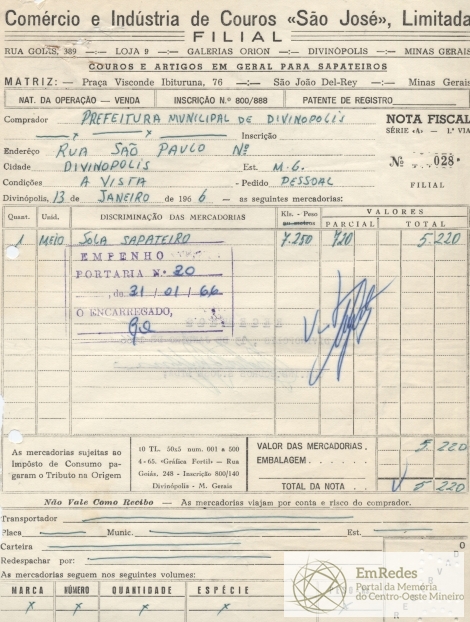 Comércio e Indústria de Couros «São José», Limitada
FILIAL
RUA GOIÁS, 389 —:— LOJA 9 —:— GALERIAS ORION —:— DIVINÓPOLIS —:— MINAS GERAIS
COUROS E ARTIGOS EM GERAL PARA SAPATEIROS
MATRIZ: — Praça Visconde Ibituruna, 76 —:— São João Del-Rey —:— Minas Gerais
NAT. DA OPERAÇÃO — VENDA INSCRIÇÃO N.º 800/888 PATENTE DE REGISTRO
Comprador PREFEITURA MUNICIPAL DE DIVINOPOLIS NOTA FISCAL
SÉRIE «A» — 1.ª VIA
x x Inscrição
Enderêço RUA SÃO PAULO Nº
Nº 028*
Cidade DIVINOPOLIS Est. M.G.
Condições A VISTA - Pedido PESSOAL FILIAL
Divinópolis, 13 de JANEIRO de 1966 — as seguintes mercadorias:
Quant. Unid. DISCRIMINAÇÃO DAS MERCADORIAS Kls. - Peso VALORES
ou metros PARCIAL TOTAL
1 MEIO SOLA SAPATEIRO 7.250 720 5.220
EMPENHO
PORTARIA N.º 20
, de 31 / 01 / 66
O ENCARREGADO,
As mercadorias sujeitas ao
Impôsto de Consumo pa-
garam o Tributo na Origem
10 TL. 50x5 num. 001 a 500
4-65. «Gráfica Fortil» — Rua
Goiás, 248 - Inscrição 800/140
Divinópolis - M. Gerais
VALOR DAS MERCADORIAS. 5.220
EMBALAGEM
TOTAL DA NOTA 5 220
Não Vale Como Recibo — As mercadorias viajam por conta e risco do comprador.
Transportador
Placa Munic. Est.
Carteira
Redespachar por:
As mercadorias seguem nos seguintes volumes:
MARCA NÚMERO QUANTIDADE ESPÉCIE
x x x x
EmRedes
Portal da Memória
do Centro-Oeste Mineiro